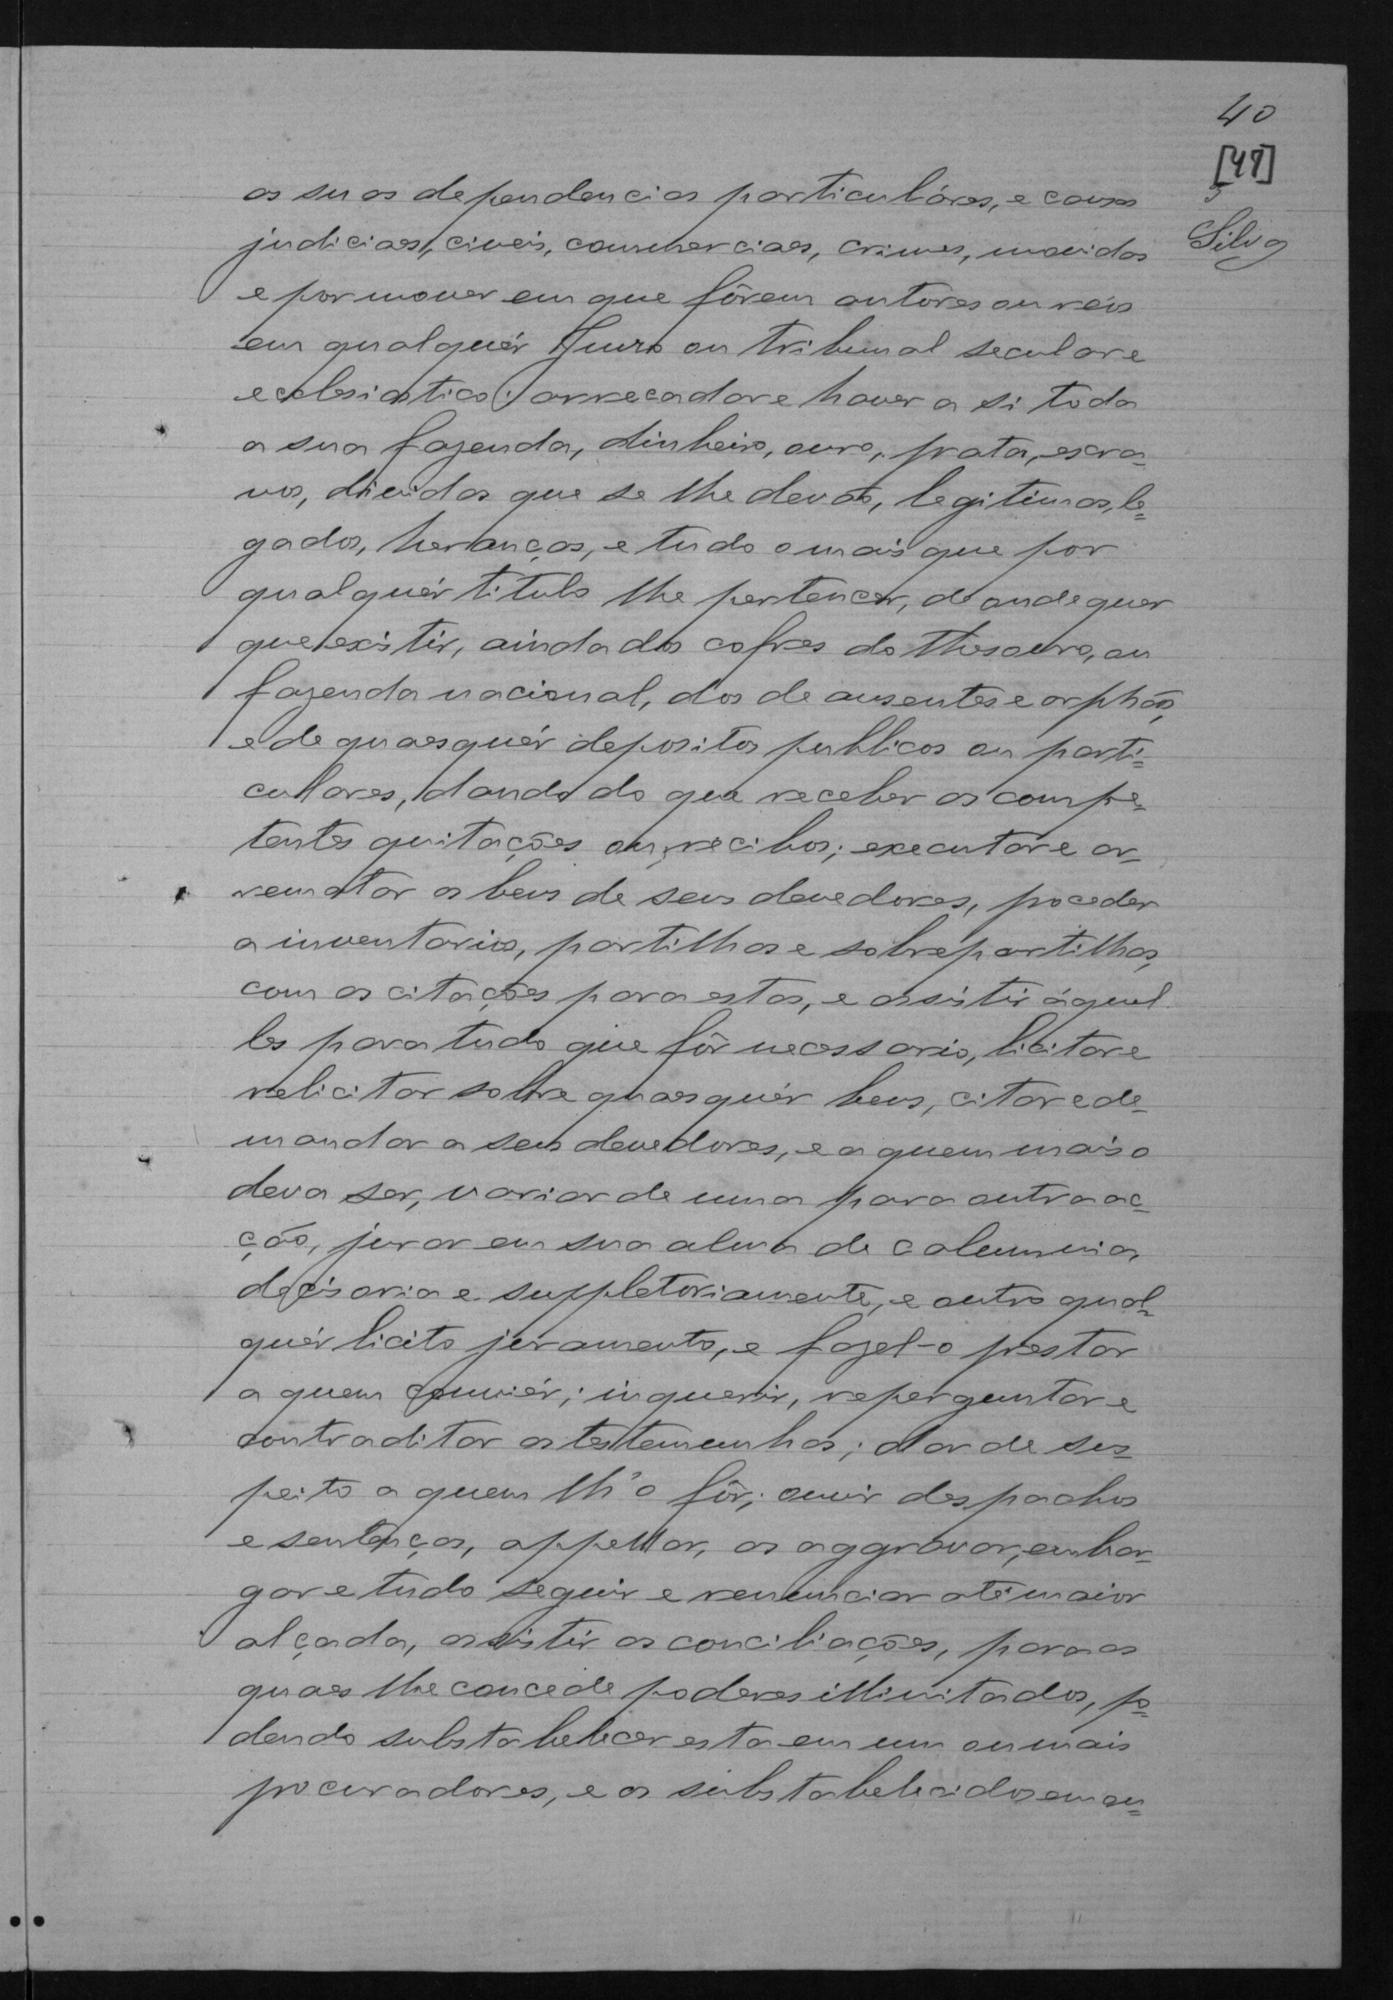 40
[47]
5
Silva
as suas dependencias particuláres, e causas
judiciaes, civeis, commerciaes, crimes, movidas
e por mover em que fôrem autores ou reis
em qualquér Juizo ou tribunal secular e
ecclesiastico: arrecadar e haver a si toda
a sua fazenda, dinheiro, ouro, prata, escra-
vos, dividas que se lhe devão, legitimas, le=
gados, heranças, e tudo o mais que por
qualquér titulo lhe pertencer, de onde quer
que existir, ainda dos cofres do thesouro, ou
fazenda nacional, dos de ausentes e orphãos,
e de quaesquér depositos publicos ou parti=
culares, dando do que receber as compe=
tentes quitações ou recibos; executar e ar-
rematar os bens de seus devedores, proceder
a inventarios, partilhas e sobrepartilhas,
com as citações para estas, e assistir áquel
les para tudo que fôr necessario, licitar e
relicitar sobre quaesquér bens, citar e de-
mandar a seus devedores, e a quem mais o
deva ser, variar de uma para outra ac=
ção, jurar em sua alma de calumnia,
decisoria e suppletoriamente, e outro qual=
quér licito juramento, e fazel-o prestar
a quem conviér; inquerir, reperguntar e
contraditar as testemunhas; dar de sus=
peito a quem lh'o fôr; ouvir despachos
e sentenças, appellar, os aggravar, embar-
gar e tudo seguir e renunciar até maior
alçada, assistir as conciliações, para as
quaes lhe concede poderes illimitados, po=
dendo substabelecer esta em um ou mais
procuradores, e os substabelecidos em ou=